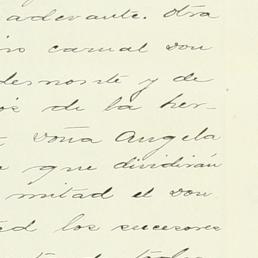 adevante. otra
carnal don
desmonte y de
os de la her-
doña Angela
que dividirán
mitad el don
los sucesores